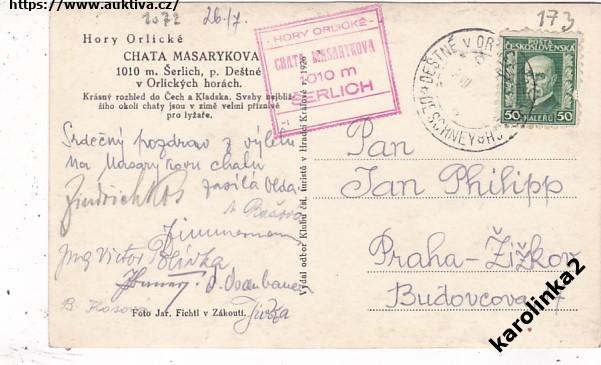 https://www.auktiva.cz/
1072 26/7. 173
Hory Orlické
CHATA MASARYKOVA
1010 m. Šerlich, p. Deštné
v Orlických horách.
Krásný rozhled do Čech a Kladska. Svahy nejbliž-
šího okolí chaty jsou v zimě velmi příznivé
pro lyžaře.
HORY ORLICKÉ
CHATA MASARYKOVA
1010 m
ŠERLICH
DEŠTNÉ V OR
DESCHNEY
POŠTA
ČESKOSLOVENSKÁ
50 HALÉŘŮ 50
Srdečný pozdrav z výletu
na Masarykovu chatu
zasílá Olda
Jindřich Kos
Zimmermann
Ing Victor Polívka
B. Kosová
Jirka
Foto Jar. Fichtl v Zákoutí.
Vydal odbor Klubu čsl. turistů v Hradci Králové r. 1926
Pan
Jan Philipp
Praha-Žižkov
Budovcova 7
karolinka2